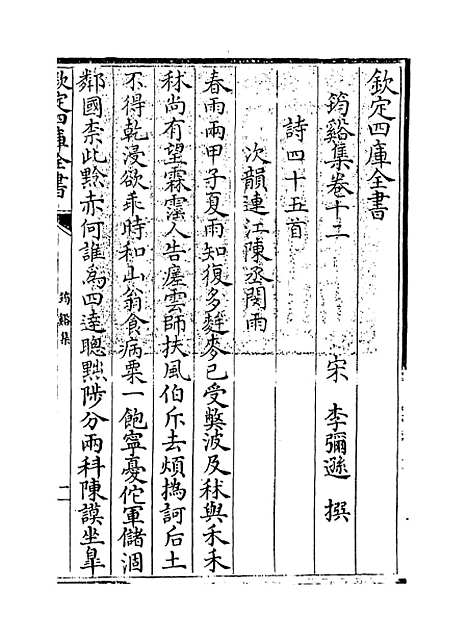 欽定四庫全書
筠谿集卷十二
宋 李彌遜 撰
詩四十五首
次韻連江陳丞閔雨
春雨兩甲子夏雨知復多麰麥已受弊波及秫與禾禾
秫尚有望霖霪人告瘥雲師扶風伯斥去煩撝訶后土
不得乾漫欲乖時和山翁食病粟一飽寧憂佗軍儲涸
鄰國柰此黔赤何誰為四達聰黜陟分兩科陳謨坐皐
欽定四庫全書
筠谿集
一